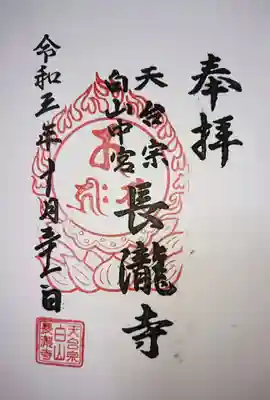 奉拝
天台宗
白山中宮
長瀧寺
令和三年十月三十一日
天台宗
白山
長瀧寺